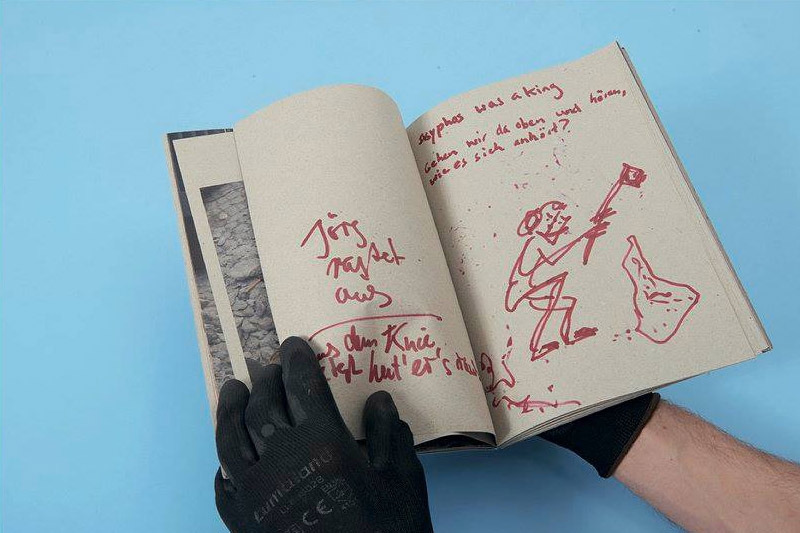 Jörg
rastet
aus
dem Knie,
hat er's
sisyphos was a king
gehen wir da oben und hören,
wie es sich anhört?
CE